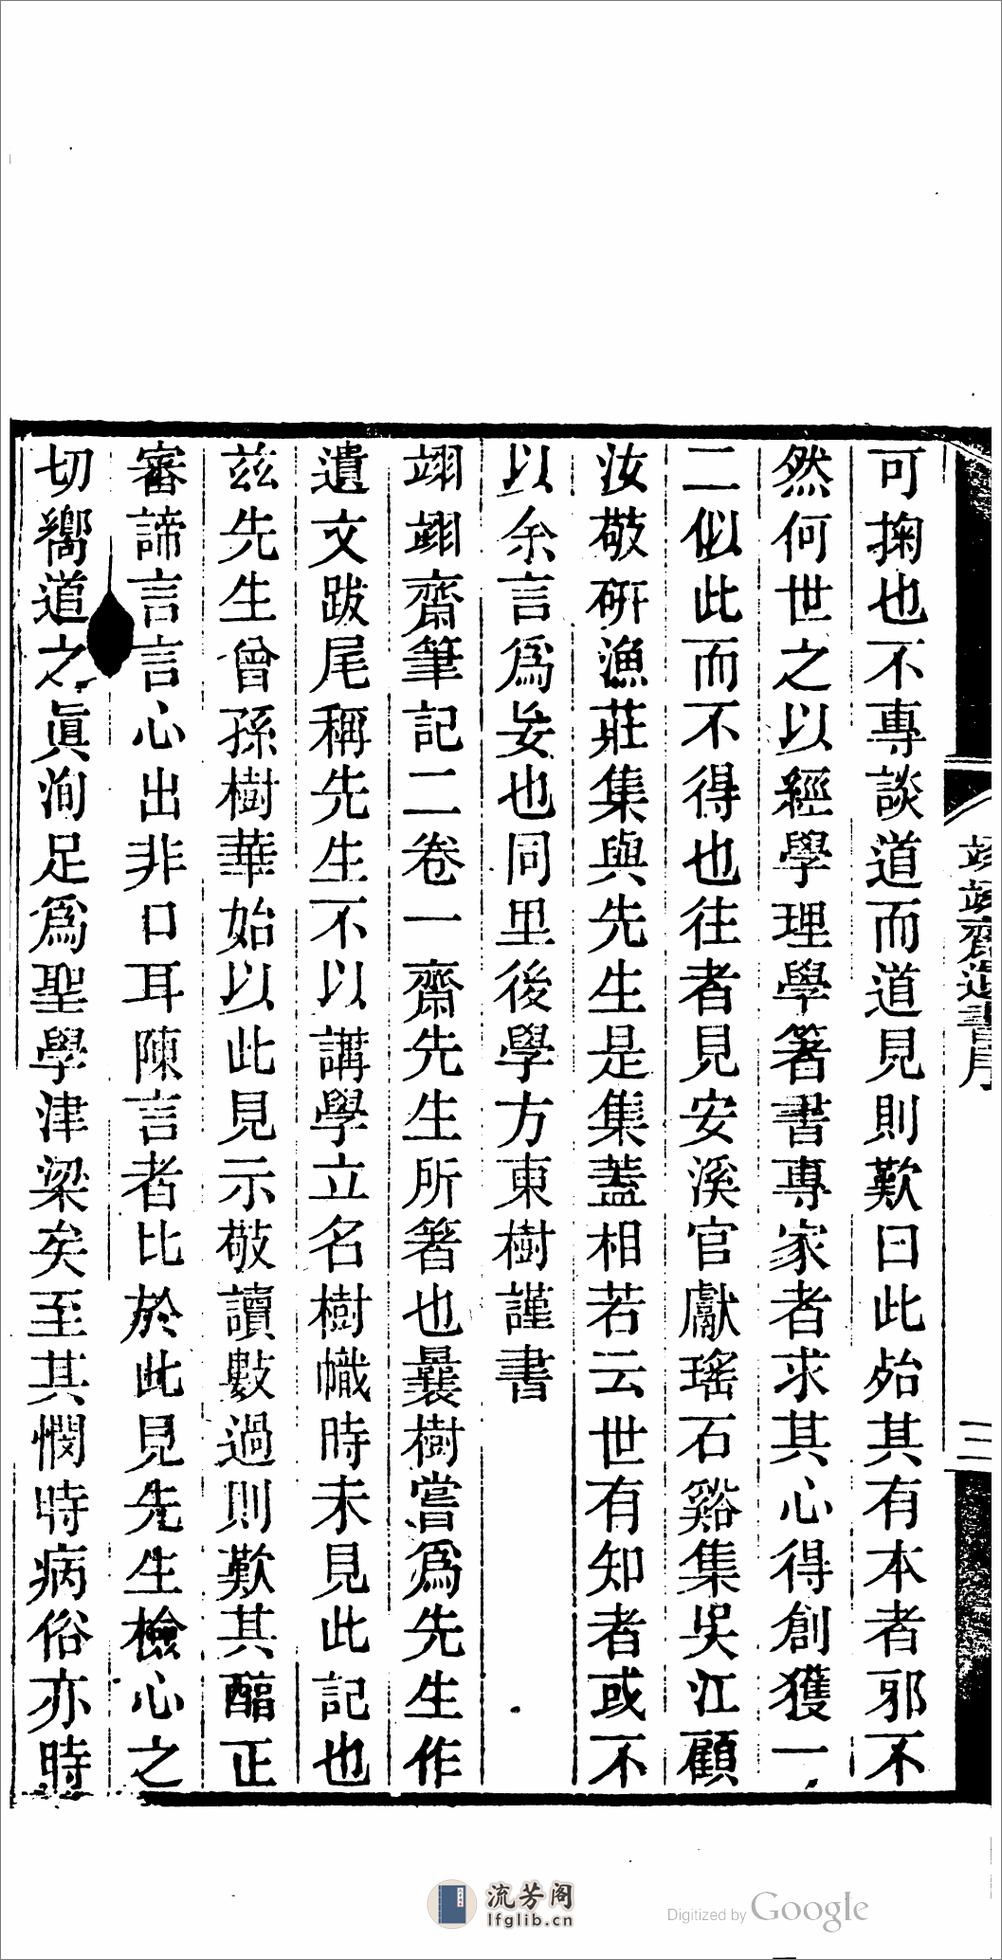 可掬也不專談道而道見則歎曰此殆其有本者邪不
然何世之以經學理學箸書專家者求其心得創獲一
二似此而不得也往者見安溪官獻瑤石谿集吳江顧
汝敬硏漁莊集與先生是集葢相若云世有知者或不
以余言爲妄也同里後學方東樹謹書
翊翊齋筆記二卷一齋先生所箸也曩樹嘗爲先生作
遺文跋尾稱先生不以講學立名樹幟時未見此記也
茲先生曾孫樹華始以此見示敬讀數過則歎其醇正
審諦言言心出非口耳陳言者比於此見先生檢心之
切嚮道之眞洵足爲聖學津梁矣至其憫時病俗亦時
翊翊齋遺書序
三
流芳阁
lfglib.cn
Digitized by Google